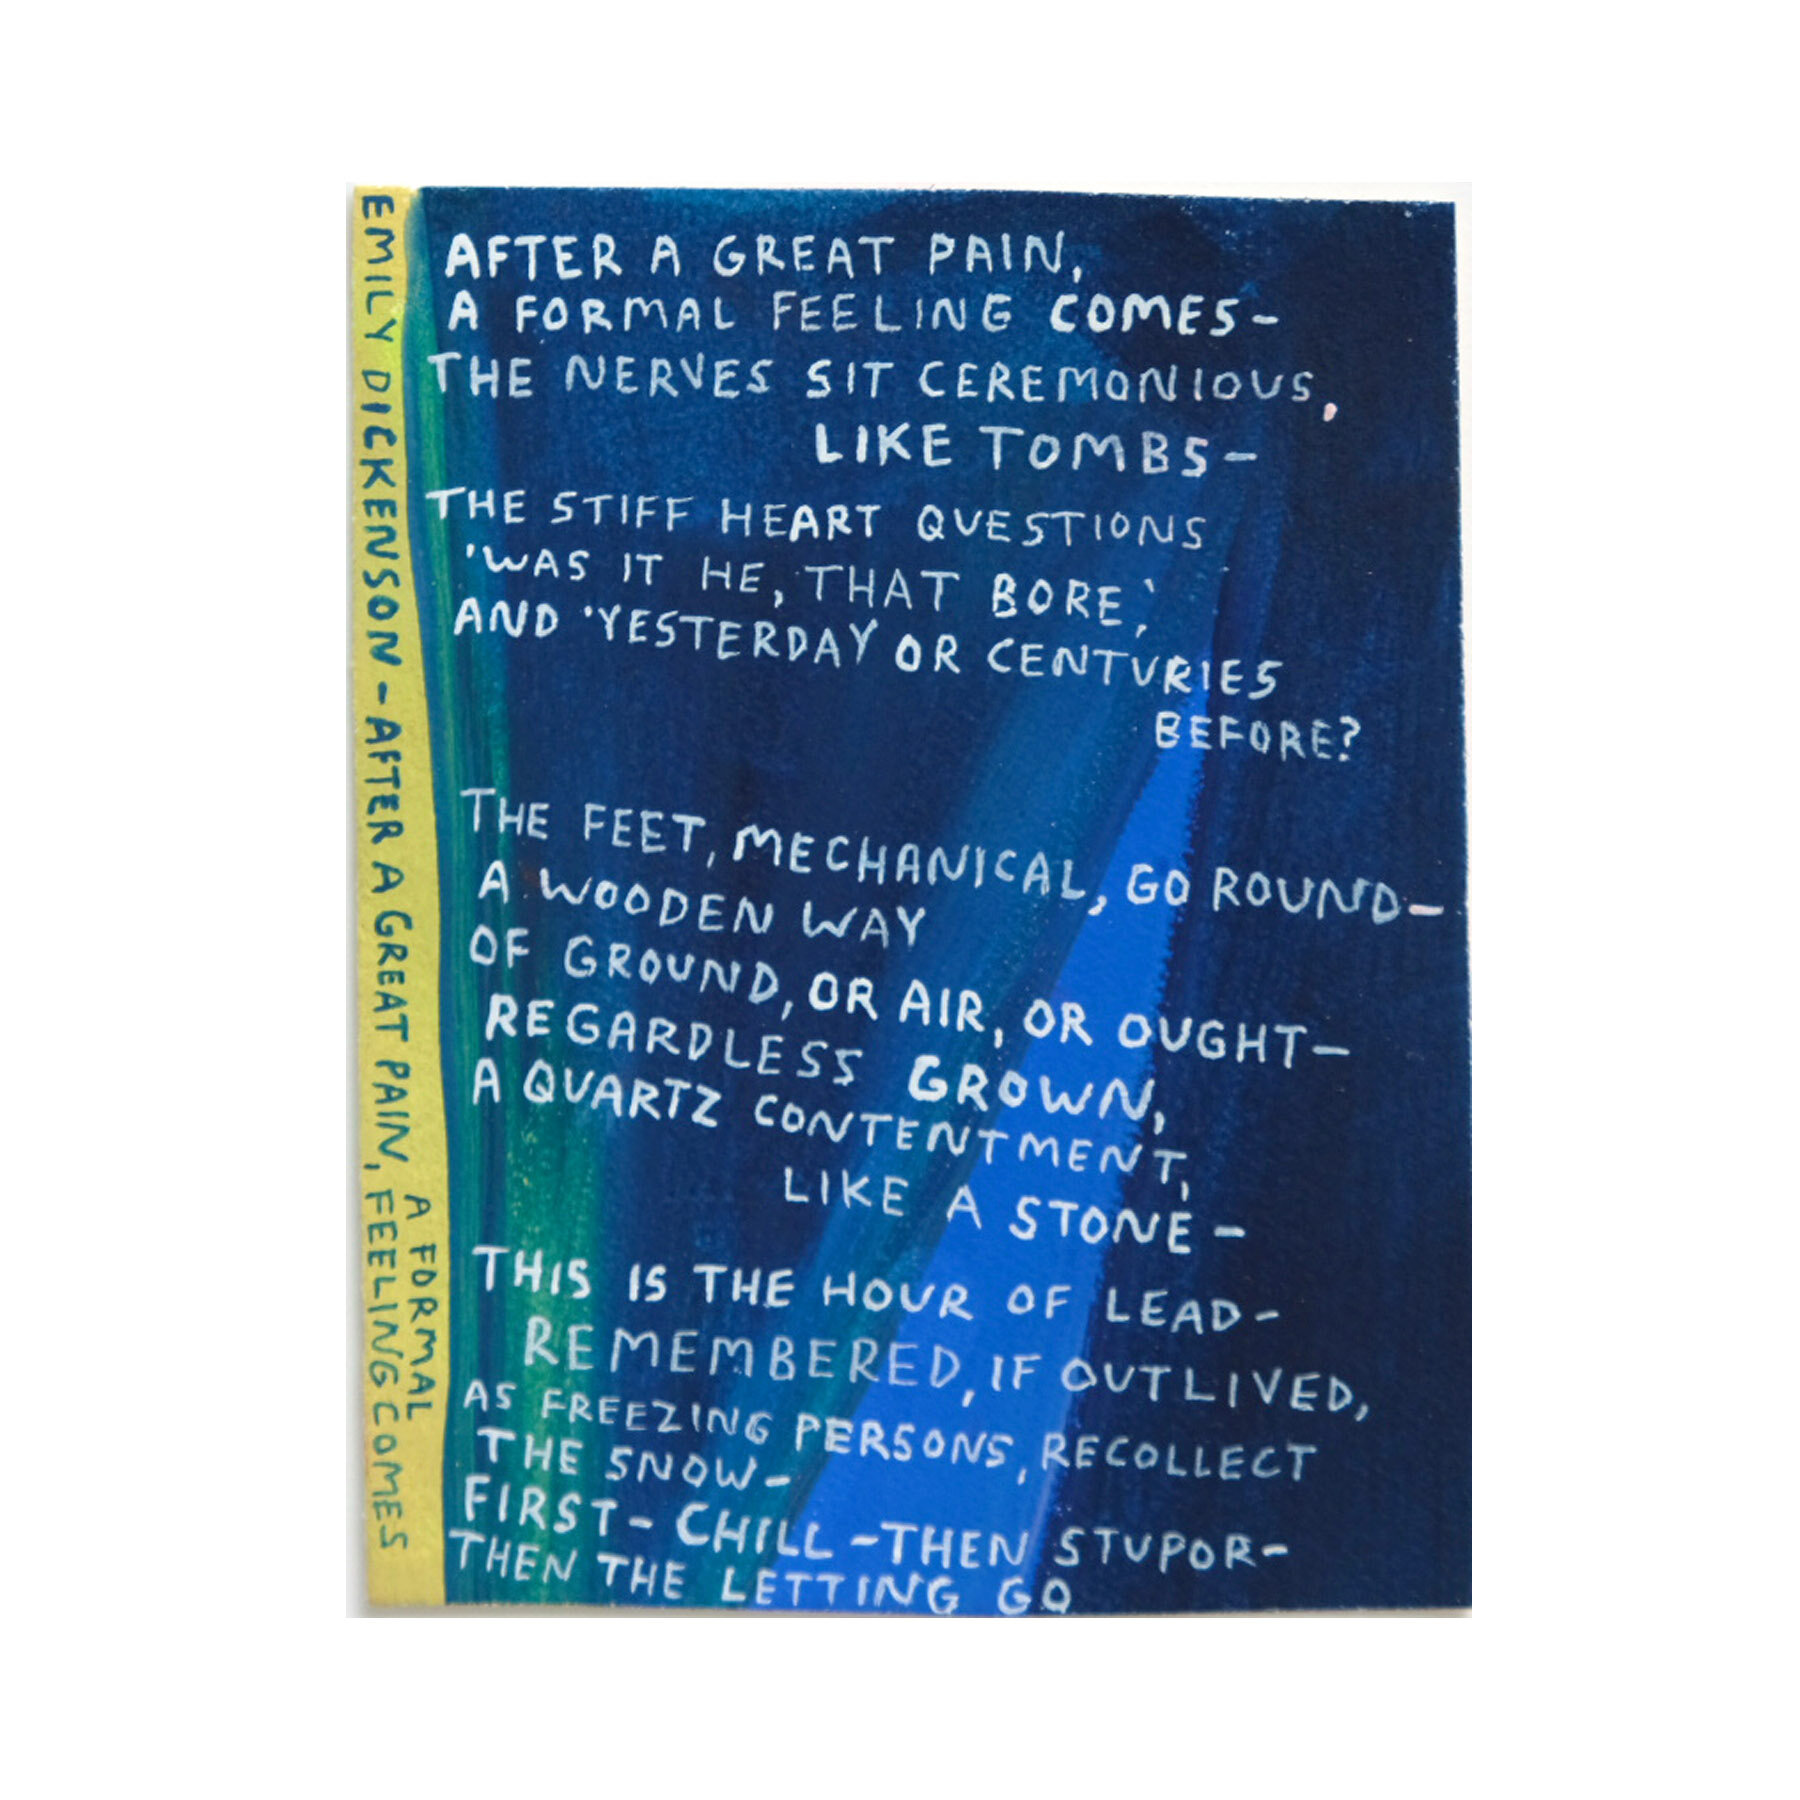 EMILY DICKENSON - AFTER A GREAT PAIN, A FORMAL
FEELING COMES
AFTER A GREAT PAIN,
A FORMAL FEELING COMES-
THE NERVES SIT CEREMONIOUS,
LIKE TOMBS-
THE STIFF HEART QUESTIONS
'WAS IT HE, THAT BORE,'
AND 'YESTERDAY OR CENTURIES
BEFORE?
THE FEET, MECHANICAL, GO ROUND-
A WOODEN WAY
OF GROUND, OR AIR, OR OUGHT-
REGARDLESS GROWN,
A QUARTZ CONTENTMENT,
LIKE A STONE-
THIS IS THE HOUR OF LEAD-
REMEMBERED, IF OUTLIVED,
AS FREEZING PERSONS, RECOLLECT
THE SNOW-
FIRST- CHILL -THEN STUPOR-
THEN THE LETTING GO